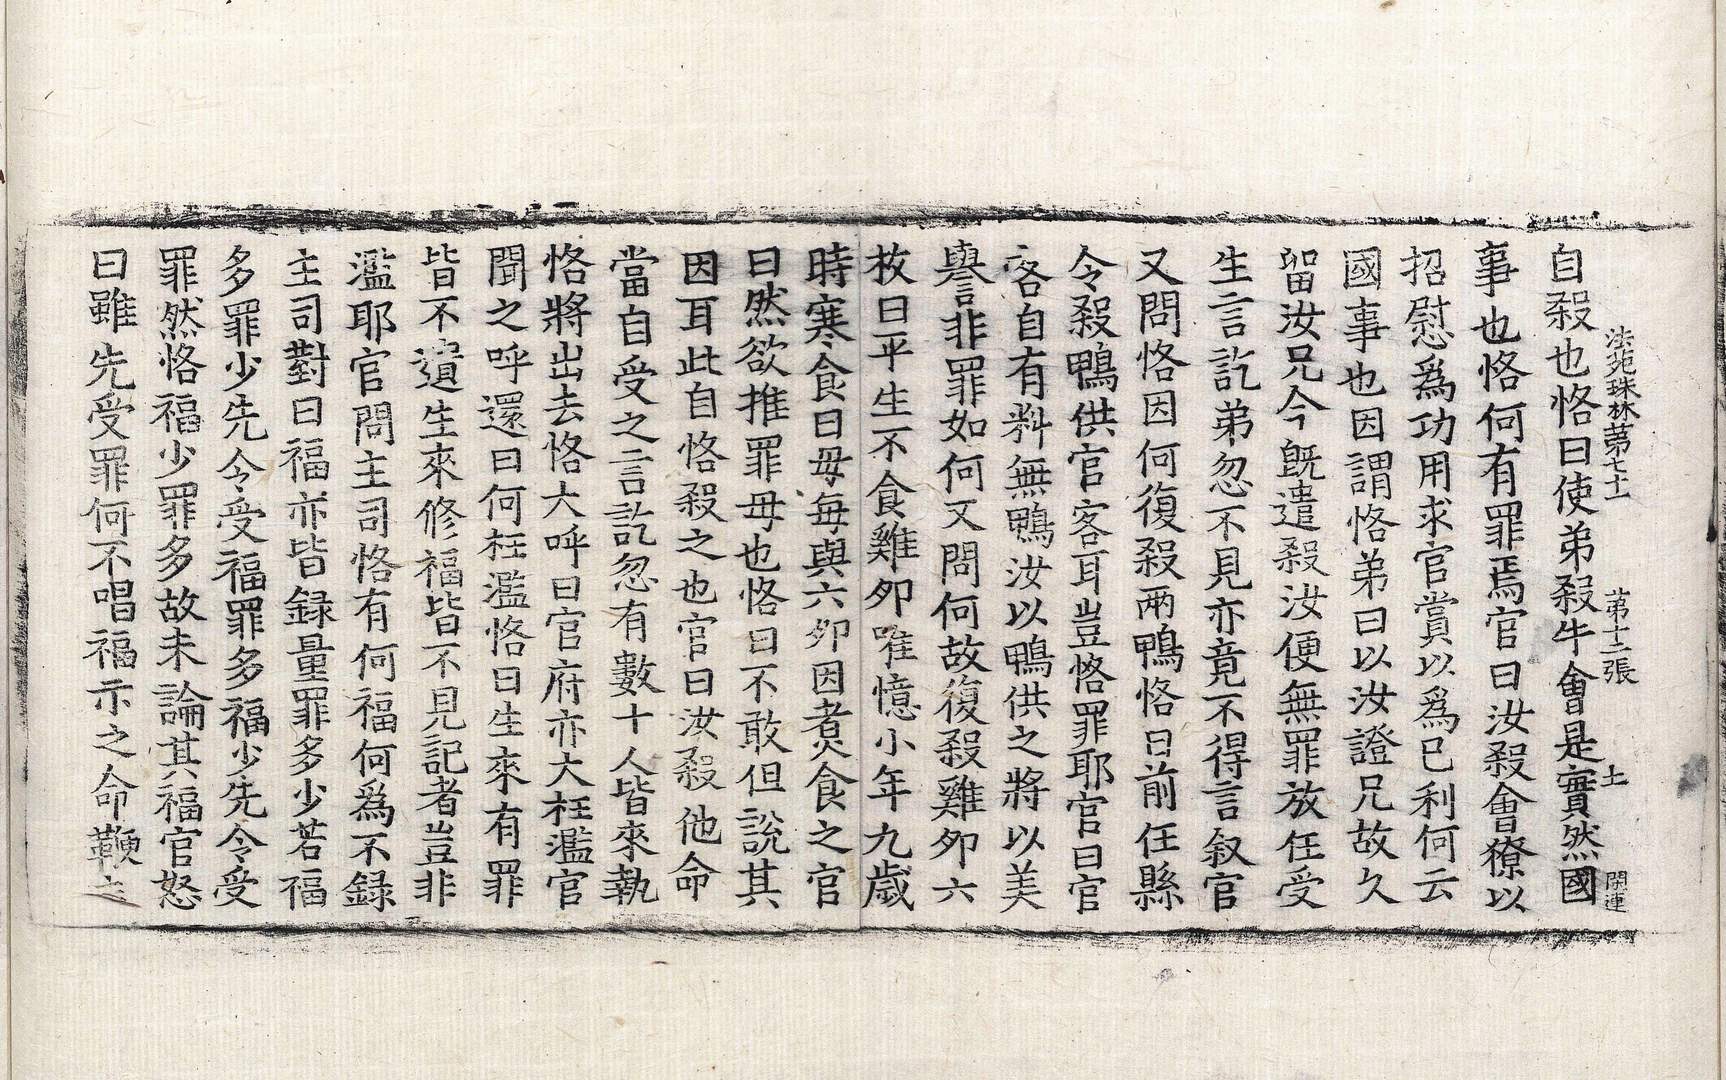 法苑珠林第七十一　第十二張　土　開運
自殺也恪曰使弟殺牛會是實然國
事也恪何有罪焉官曰汝殺會獠以
招慰爲功用求官賞以爲已利何云
國事也因謂恪弟曰以汝證兄故久
留汝兄今旣遣殺汝便無罪放任受
生言訖弟忽不見亦竟不得言叙官
又問恪因何復殺兩鴨恪曰前任縣
令殺鴨供官客耳豈恪罪耶官曰官
客自有料無鴨汝以鴨供之將以美
譽非罪如何又問何故復殺雞夘六
枚曰平生不食雞夘唯憶小年九歲
時寒食日母每與六夘因煮食之官
曰然欲推罪母也恪曰不敢但說其
因耳此自恪殺之也官曰汝殺他命
當自受之言訖忽有數十人皆來執
恪將出去恪大呼曰官府亦大枉濫官
聞之呼還曰何枉濫恪曰生來有罪
皆不遺生來修福皆不見記者豈非
濫耶官問主司恪有何福何爲不録
主司對曰福亦皆録量罪多少若福
多罪少先令受福罪多福少先令受
罪然恪福少罪多故未論其福官怒
曰雖先受罪何不唱福示之命鞭之